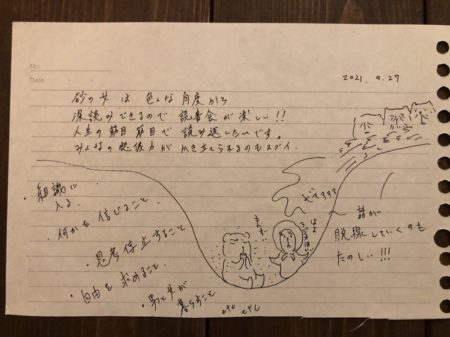 No.
Date
2021. 9. 27
砂の女は色んな角度から
深読みできるので読書会が楽しい!!
人生の節目節目で読み返したいです。
みんなの想像力がかき立てられるのもスゴイ
・組織に
入る。
・何かを信じること
・思考停止すること
・自由を求めること
・男と女が
暮らすこと
etc etc
ザザザザザ
話が
脱線していくのも
たのしい!!!